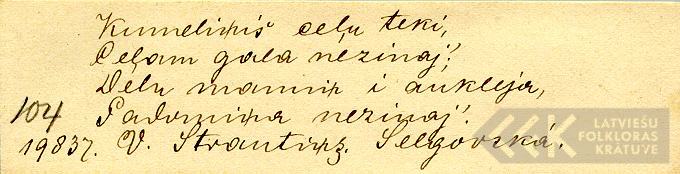 Kumeliņis ceļu teki,
Ceļam gala neẓinaj;
Dēlu mamiņ i aukleja,
104 Padomiņa neẓinaj.
19837. V. Strautiņẓ. Selgovskā.
LATVIEŠU
FOLKLORAS
KRĀTUVE